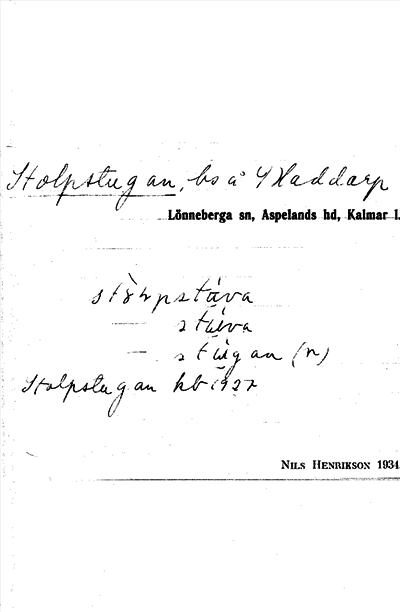 Stolpstugan, bs å Haddarp
Lönneberga sn, Aspelands hd, Kalmar l.
stava
— stuva
— stugan (n)
Stolpstugan kb 1927
NILS HENRIKSON 1934.